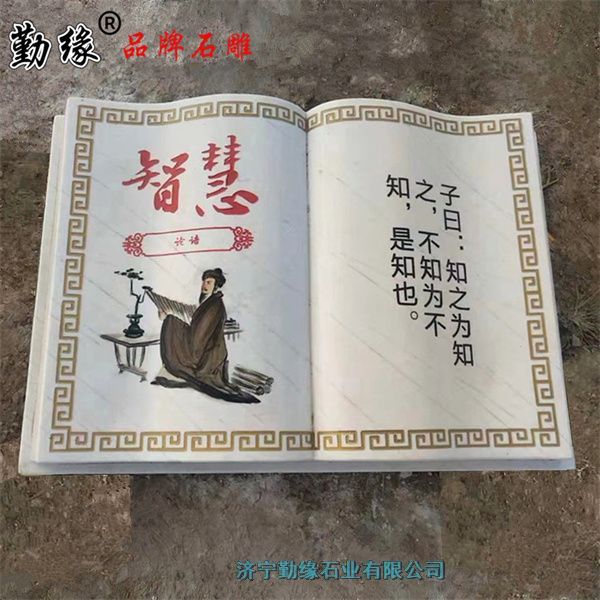 勤缘® 品牌石雕
智慧
论语
子曰：知之为知
之，不知为不
知，是知也。
济宁勤缘石业有限公司